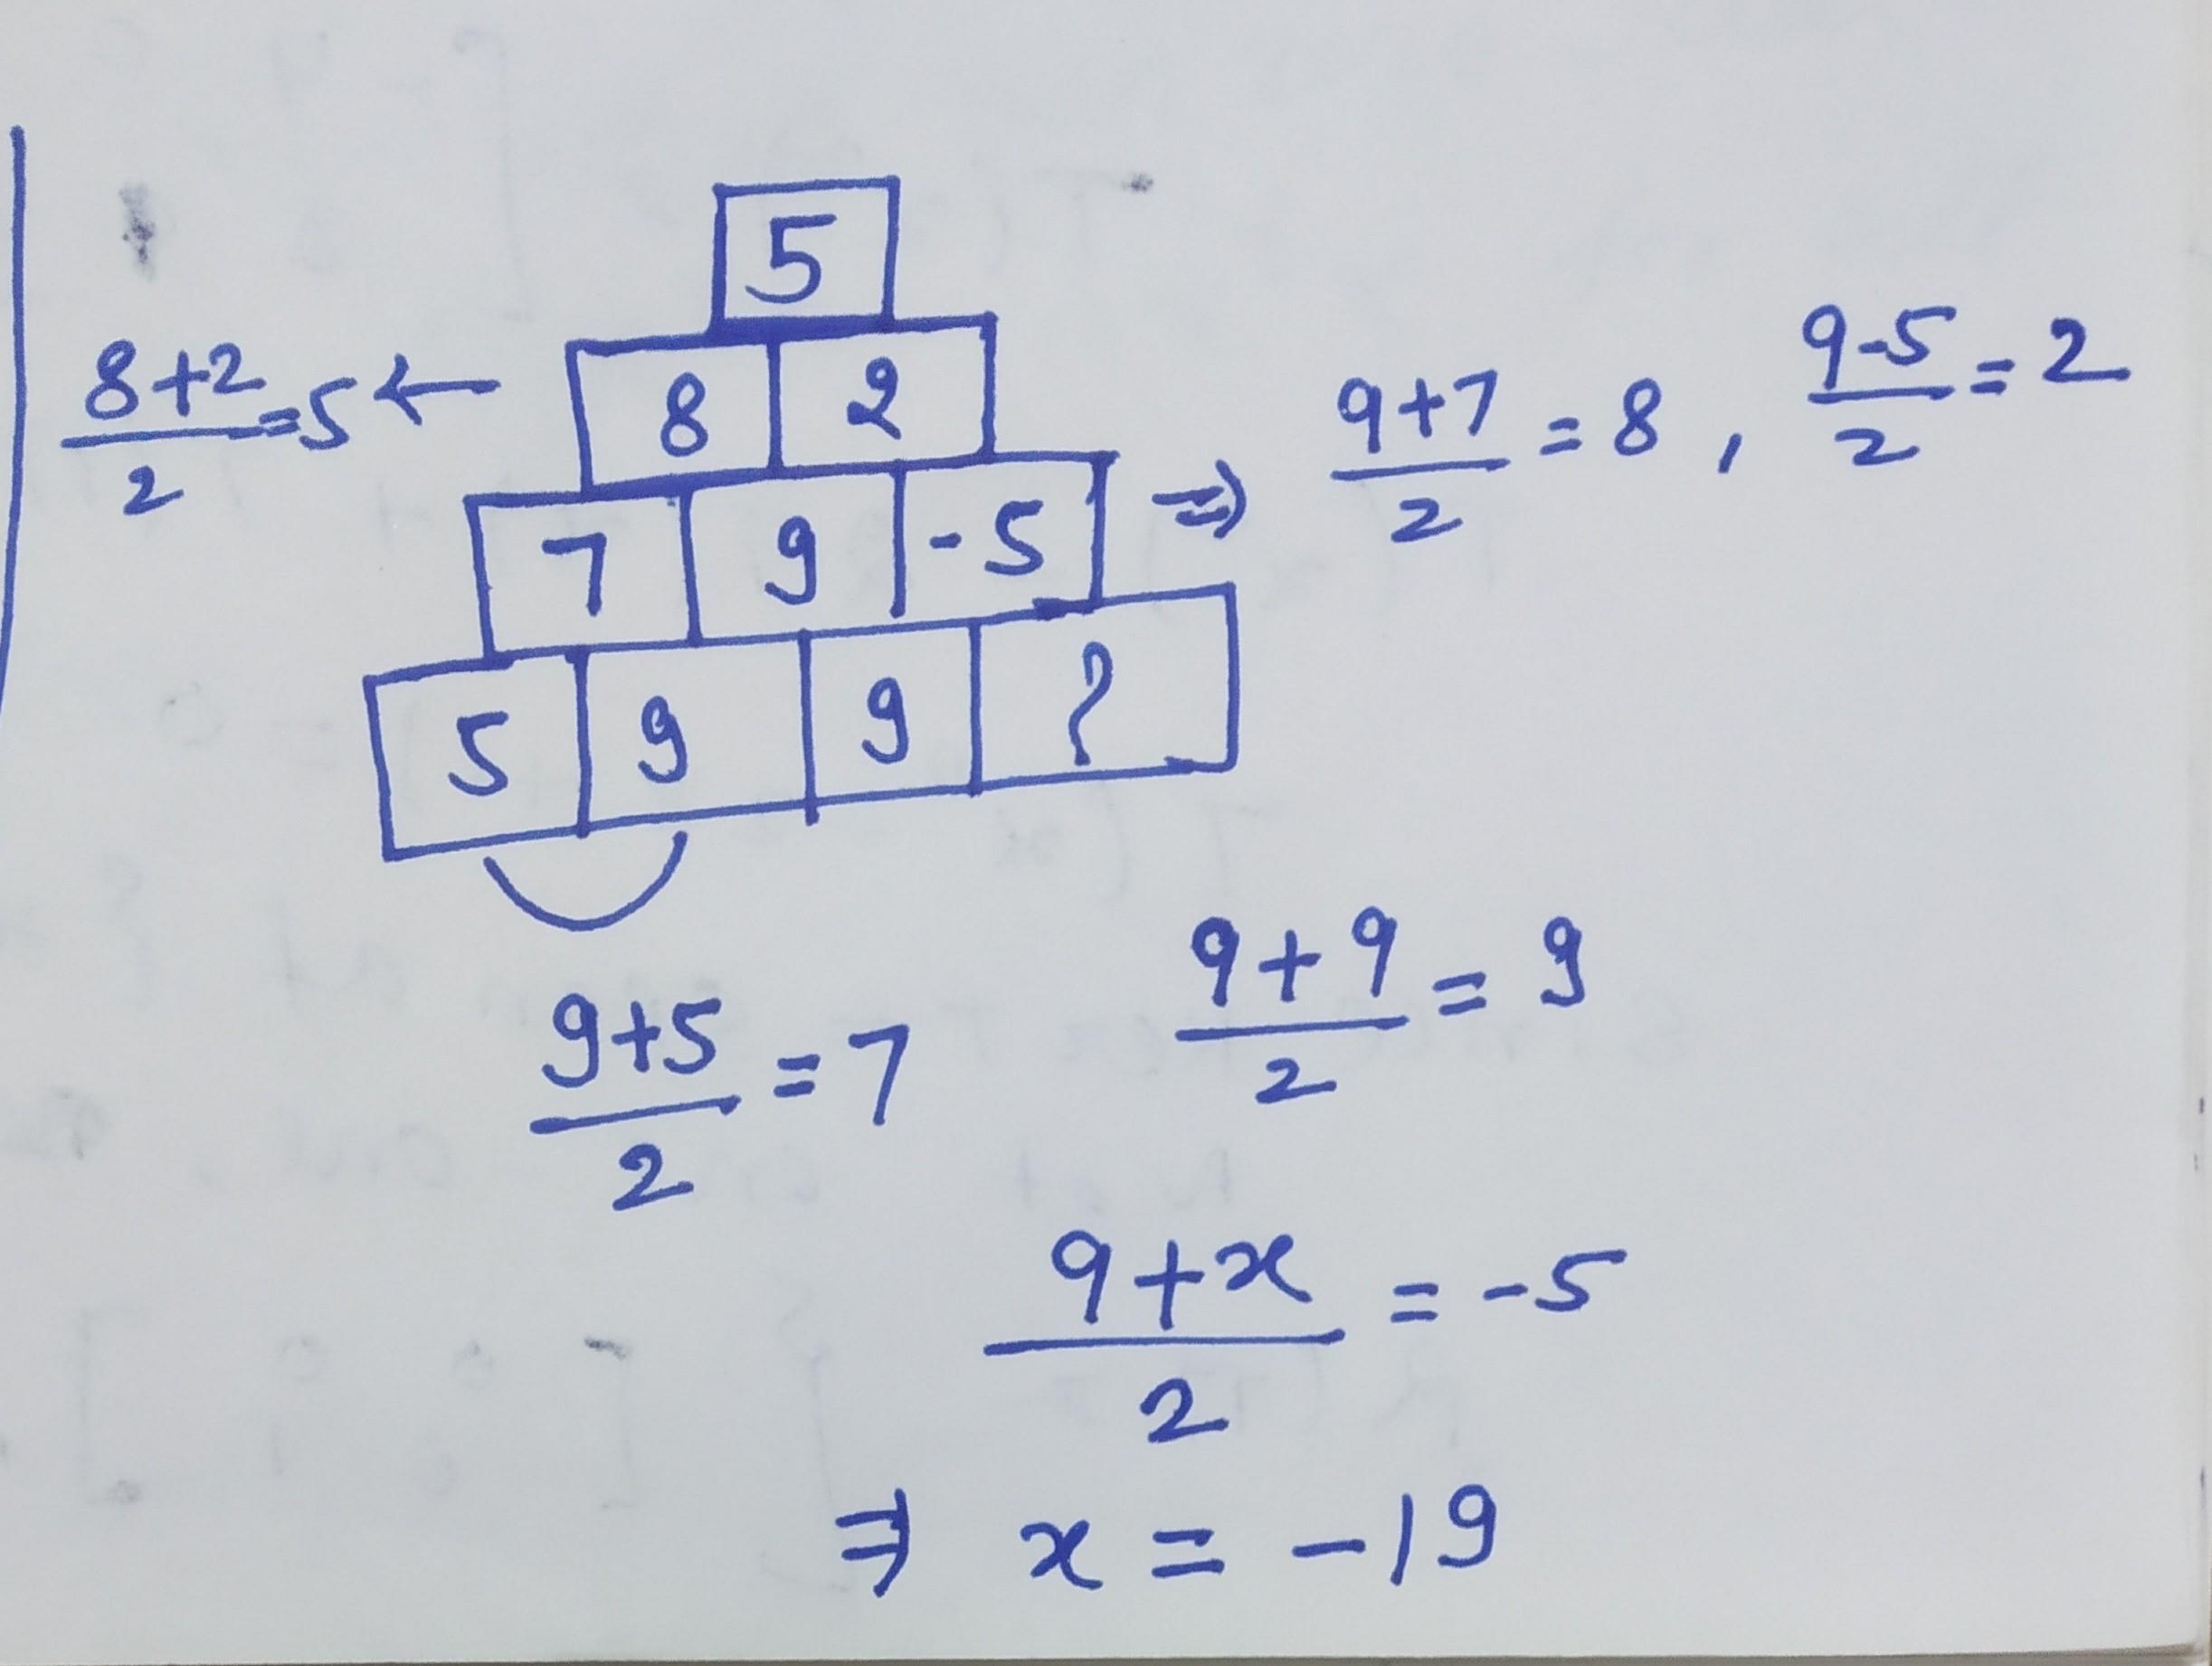 5
8+2/2 =5 ← 8 2
7 9 -5 ⇒ 9+7/2 = 8 , 9-5/2 = 2
5 9 9 ?
9+5/2 = 7 9+9/2 = 9
9+x/2 = -5
⇒ x = -19